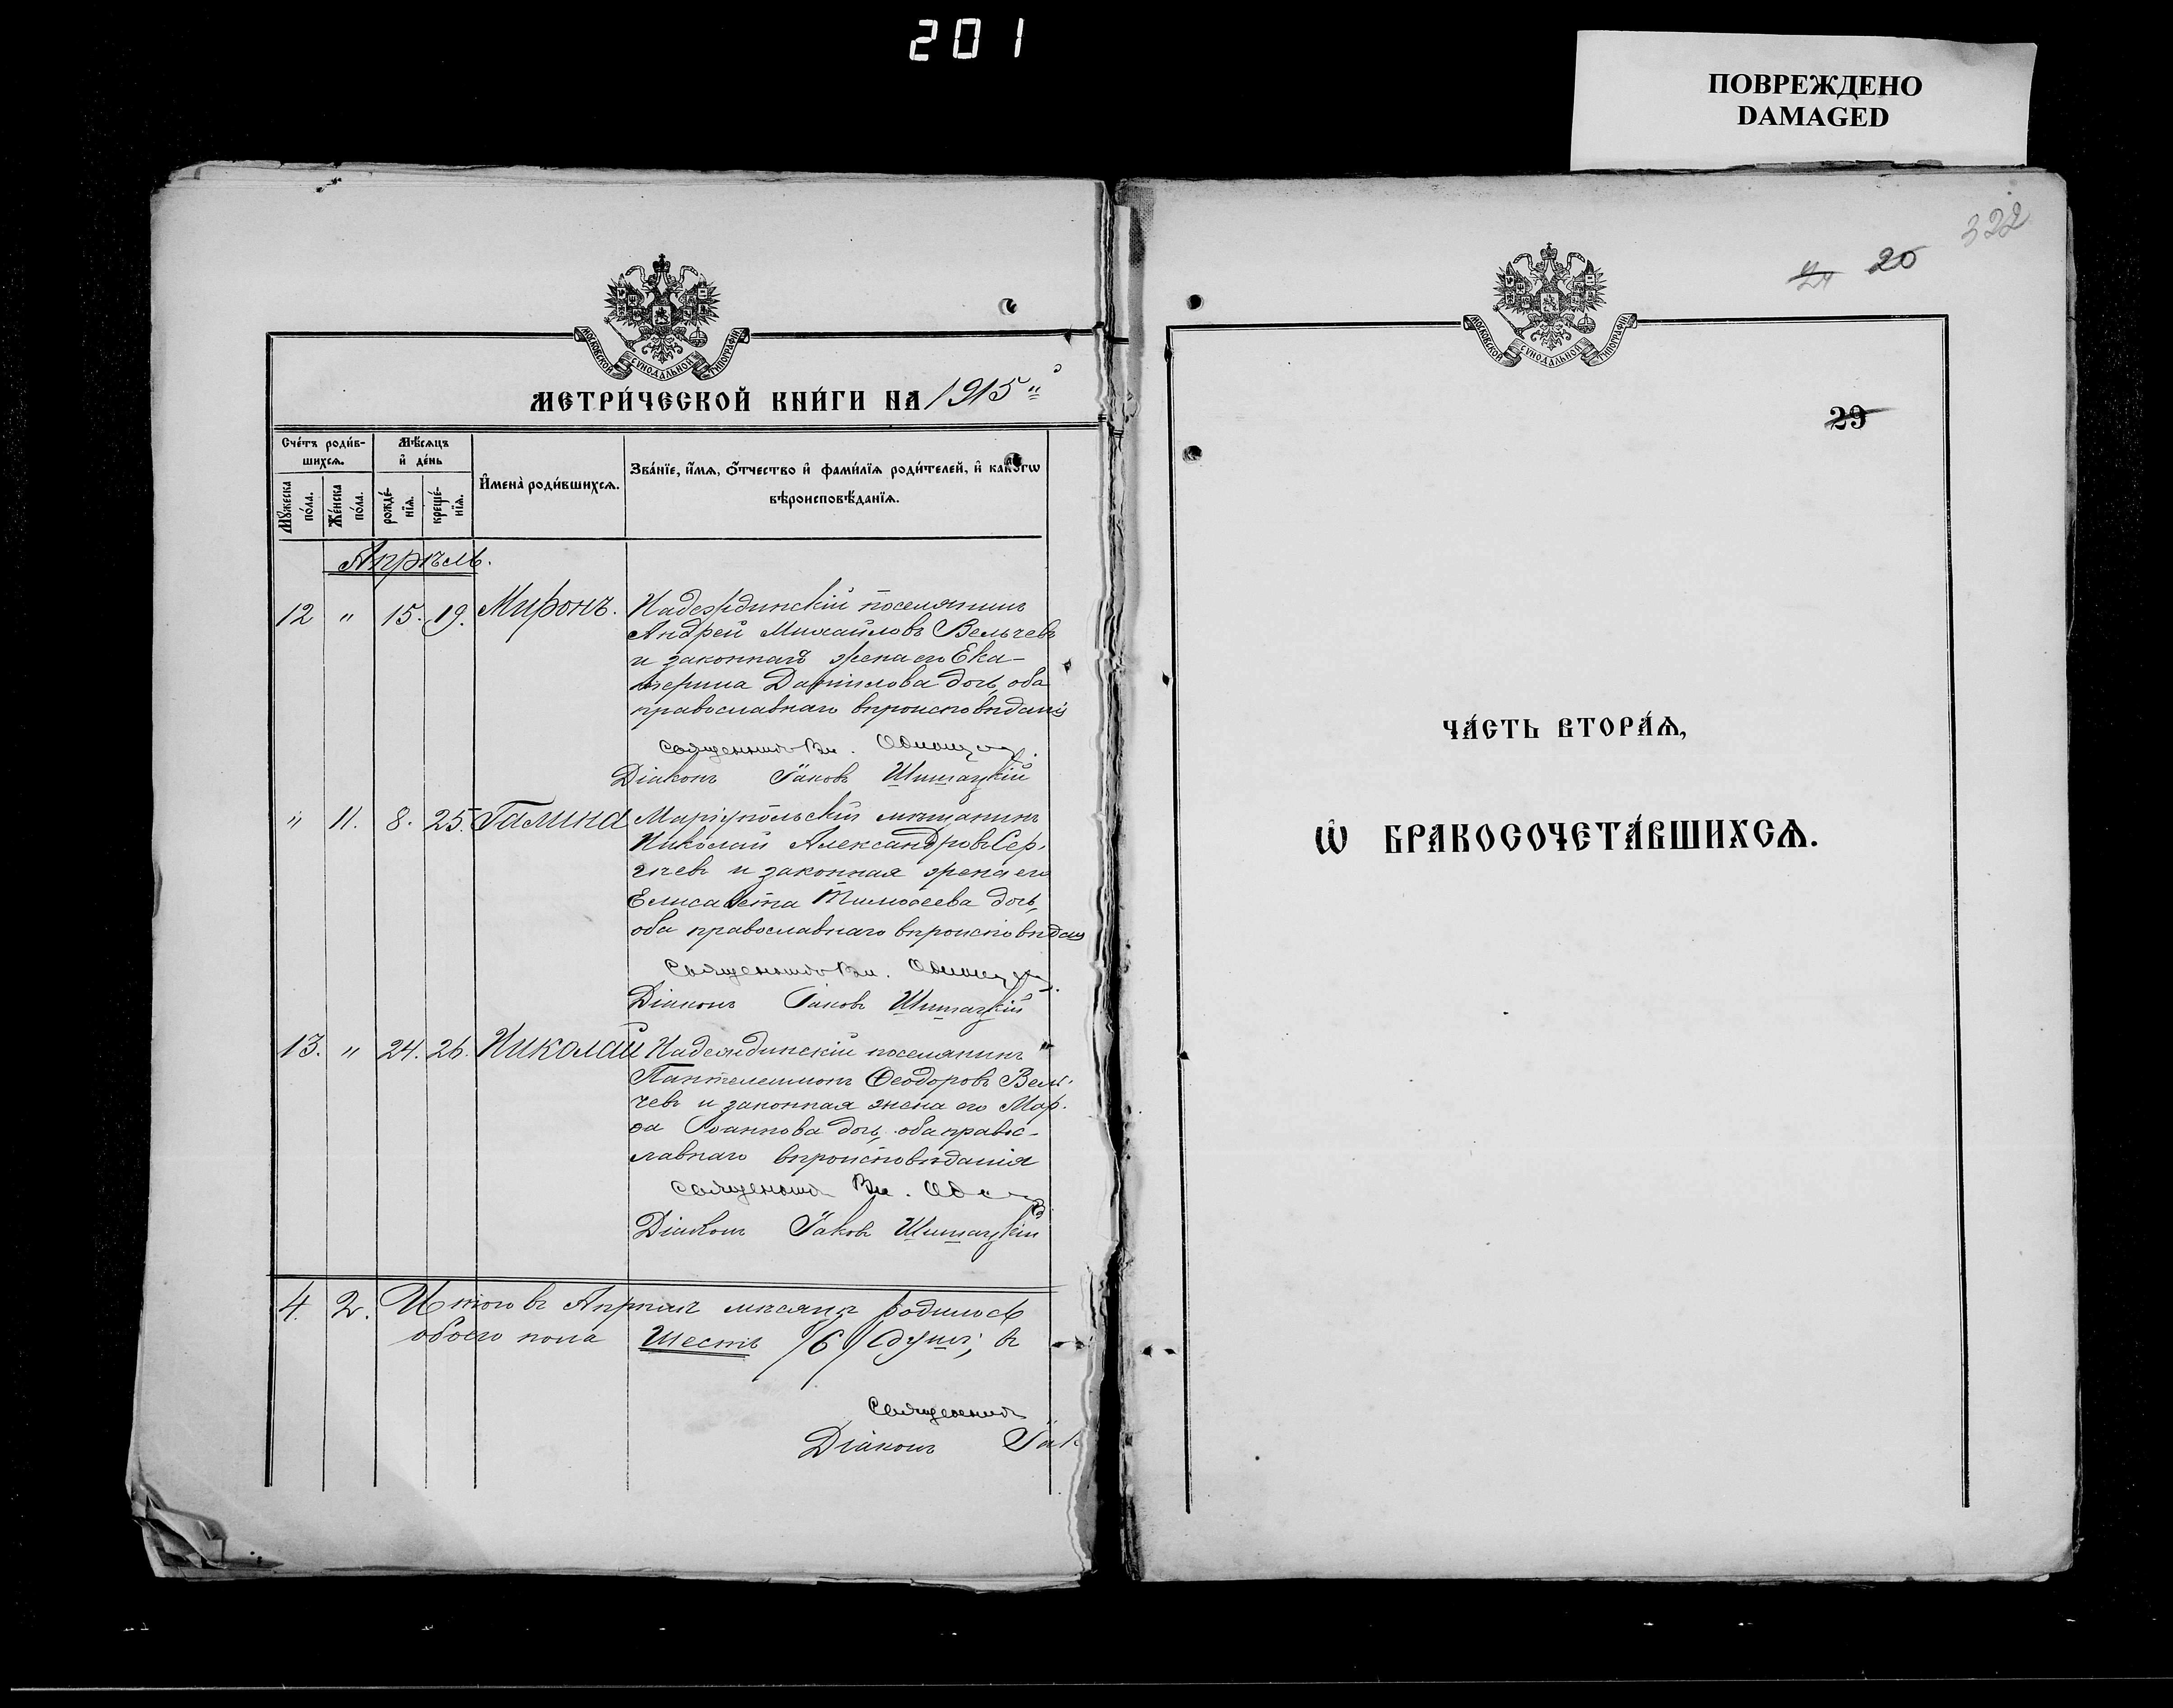 201
ПОВРЕЖДЕНО
DAMAGED
МОСКОВСКОЙ СѴНОДАЛЬНОЙ ТИПОГРАФІИ
МЕТРИ́ЧЕСКОЙ КНИ́ГИ НА 1915
Сче́тъ роди́в-
шихсѧ.
Мꙋ́жеска по́ла.
Же́нска по́ла.
Мѣ́сѧцъ
и҆ де́нь
рожде́-
нїѧ.
креще́-
нїѧ.
И҆мена̀ роди́вшихсѧ.
Зва́нїе, и҆́мѧ, ѻ҆́тчество и҆ фами́лїѧ роди́телей, и҆ како́гѡ
вѣроисповѣ́данїѧ.
Апрѣль.
12 " 15. 19. Миронъ. Надеждинскій поселянинъ
Андрей Михайловъ Вельчевъ
и законная жена его Ека-
терина Даніилова дочь, оба
православнаго вѣроисповѣданія
Священникъ Вл.
Діаконъ Іаковъ Шишацкій
" 11. 8. 25. Галина Маріупольскій мѣщанинъ
Николай Александровъ Сер-
гѣевъ и законная жена его
Елисавета Тимоѳеева дочь,
оба православнаго вѣроисповѣдан
Священникъ Вл.
Діаконъ Іаковъ Шишацкій
13. " 24. 26. Николай Надеждинскій поселянинъ
Пантелеимонъ Ѳеодоровъ Вель-
чевъ и законная жена его Мар-
ѳа Іоаннова дочь, оба право-
славнаго вѣроисповѣданія
Священникъ Вл.
Діаконъ Іаковъ Шишацкій
4. 2. Итого въ Апрѣлѣ мѣсяцѣ родилось
обоего пола Шесть /6/ душъ; в
Священникъ
Діаконъ Іак
322
20
МОСКОВСКОЙ СѴНОДАЛЬНОЙ ТИПОГРАФІИ
29
ЧА́СТЬ ВТОРА́Ѧ,
Ѽ БРАКОСОЧЕТА́ВШИХСѦ.